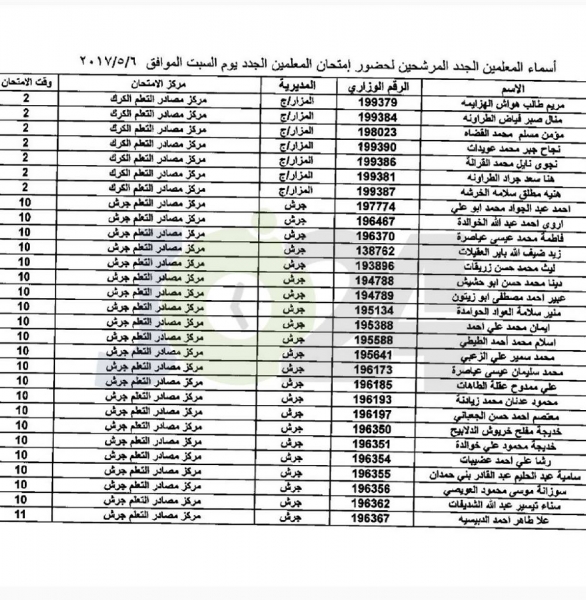 أسماء المعلمين الجدد المرشحين لحضور إمتحان المعلمين الجدد يوم السبت الموافق ٢٠١٧/٥/٦
الاسم الرقم الوزاري المديرية مركز الامتحان وقت الامتحان
مريم طالب هواش الهزايمه 199379 المزار/ج مركز مصادر التعلم الكرك 2
منال صبر فياض الطراونه 199384 المزار/ج مركز مصادر التعلم الكرك 2
مؤمن مسلم محمد القضاه 198023 المزار/ج مركز مصادر التعلم الكرك 2
نجاح جبر محمد عويدات 199390 المزار/ج مركز مصادر التعلم الكرك 2
نجوى نايل محمد القرالة 199386 المزار/ج مركز مصادر التعلم الكرك 2
هنا سعد جراد الطراونه 199381 المزار/ج مركز مصادر التعلم الكرك 2
هنيه مطلق سلامه الخرشه 199387 المزار/ج مركز مصادر التعلم الكرك 2
احمد عبد الجواد محمد ابو علي 197774 جرش مركز مصادر التعلم جرش 10
اروى احمد عبد الله الخوالدة 196467 جرش مركز مصادر التعلم جرش 10
فاطمة محمد عيسى عياصرة 196370 جرش مركز مصادر التعلم جرش 10
زيد ضيف الله باير العقيلات 138762 جرش مركز مصادر التعلم جرش 10
ليث محمد حسن زريقات 193896 جرش مركز مصادر التعلم جرش 10
دينا محمد حسن ابو حشيش 194788 جرش مركز مصادر التعلم جرش 10
عبير احمد مصطفى ابو زيتون 194789 جرش مركز مصادر التعلم جرش 10
منير سلامة العواد الحوامدة 195134 جرش مركز مصادر التعلم جرش 10
ايمان محمد علي احمد 195388 جرش مركز مصادر التعلم جرش 10
اسلام محمد أحمد الطيطي 195588 جرش مركز مصادر التعلم جرش 10
محمد سمير علي الزعبي 195641 جرش مركز مصادر التعلم جرش 10
محمد سليمان عيسى عياصرة 196173 جرش مركز مصادر التعلم جرش 10
علي ممدوح عقلة الطاهات 196185 جرش مركز مصادر التعلم جرش 10
محمود عدنان محمد زيادنة 196193 جرش مركز مصادر التعلم جرش 10
معتصم احمد حسن الجعباني 196197 جرش مركز مصادر التعلم جرش 10
خديجة مفلح خربوش الدلابيح 196350 جرش مركز مصادر التعلم جرش 10
خديجة محمود علي خوالدة 196351 جرش مركز مصادر التعلم جرش 10
رشا علي احمد عضيبات 196354 جرش مركز مصادر التعلم جرش 10
سامية عبد الحليم عبد القادر بني حمدان 196355 جرش مركز مصادر التعلم جرش 10
سوزانة موسى محمود العويصي 196356 جرش مركز مصادر التعلم جرش 10
سناء تيسير عبد الله الشديفات 196362 جرش مركز مصادر التعلم جرش 10
علا طاهر احمد الدبيسيه 196367 جرش مركز مصادر التعلم جرش 11